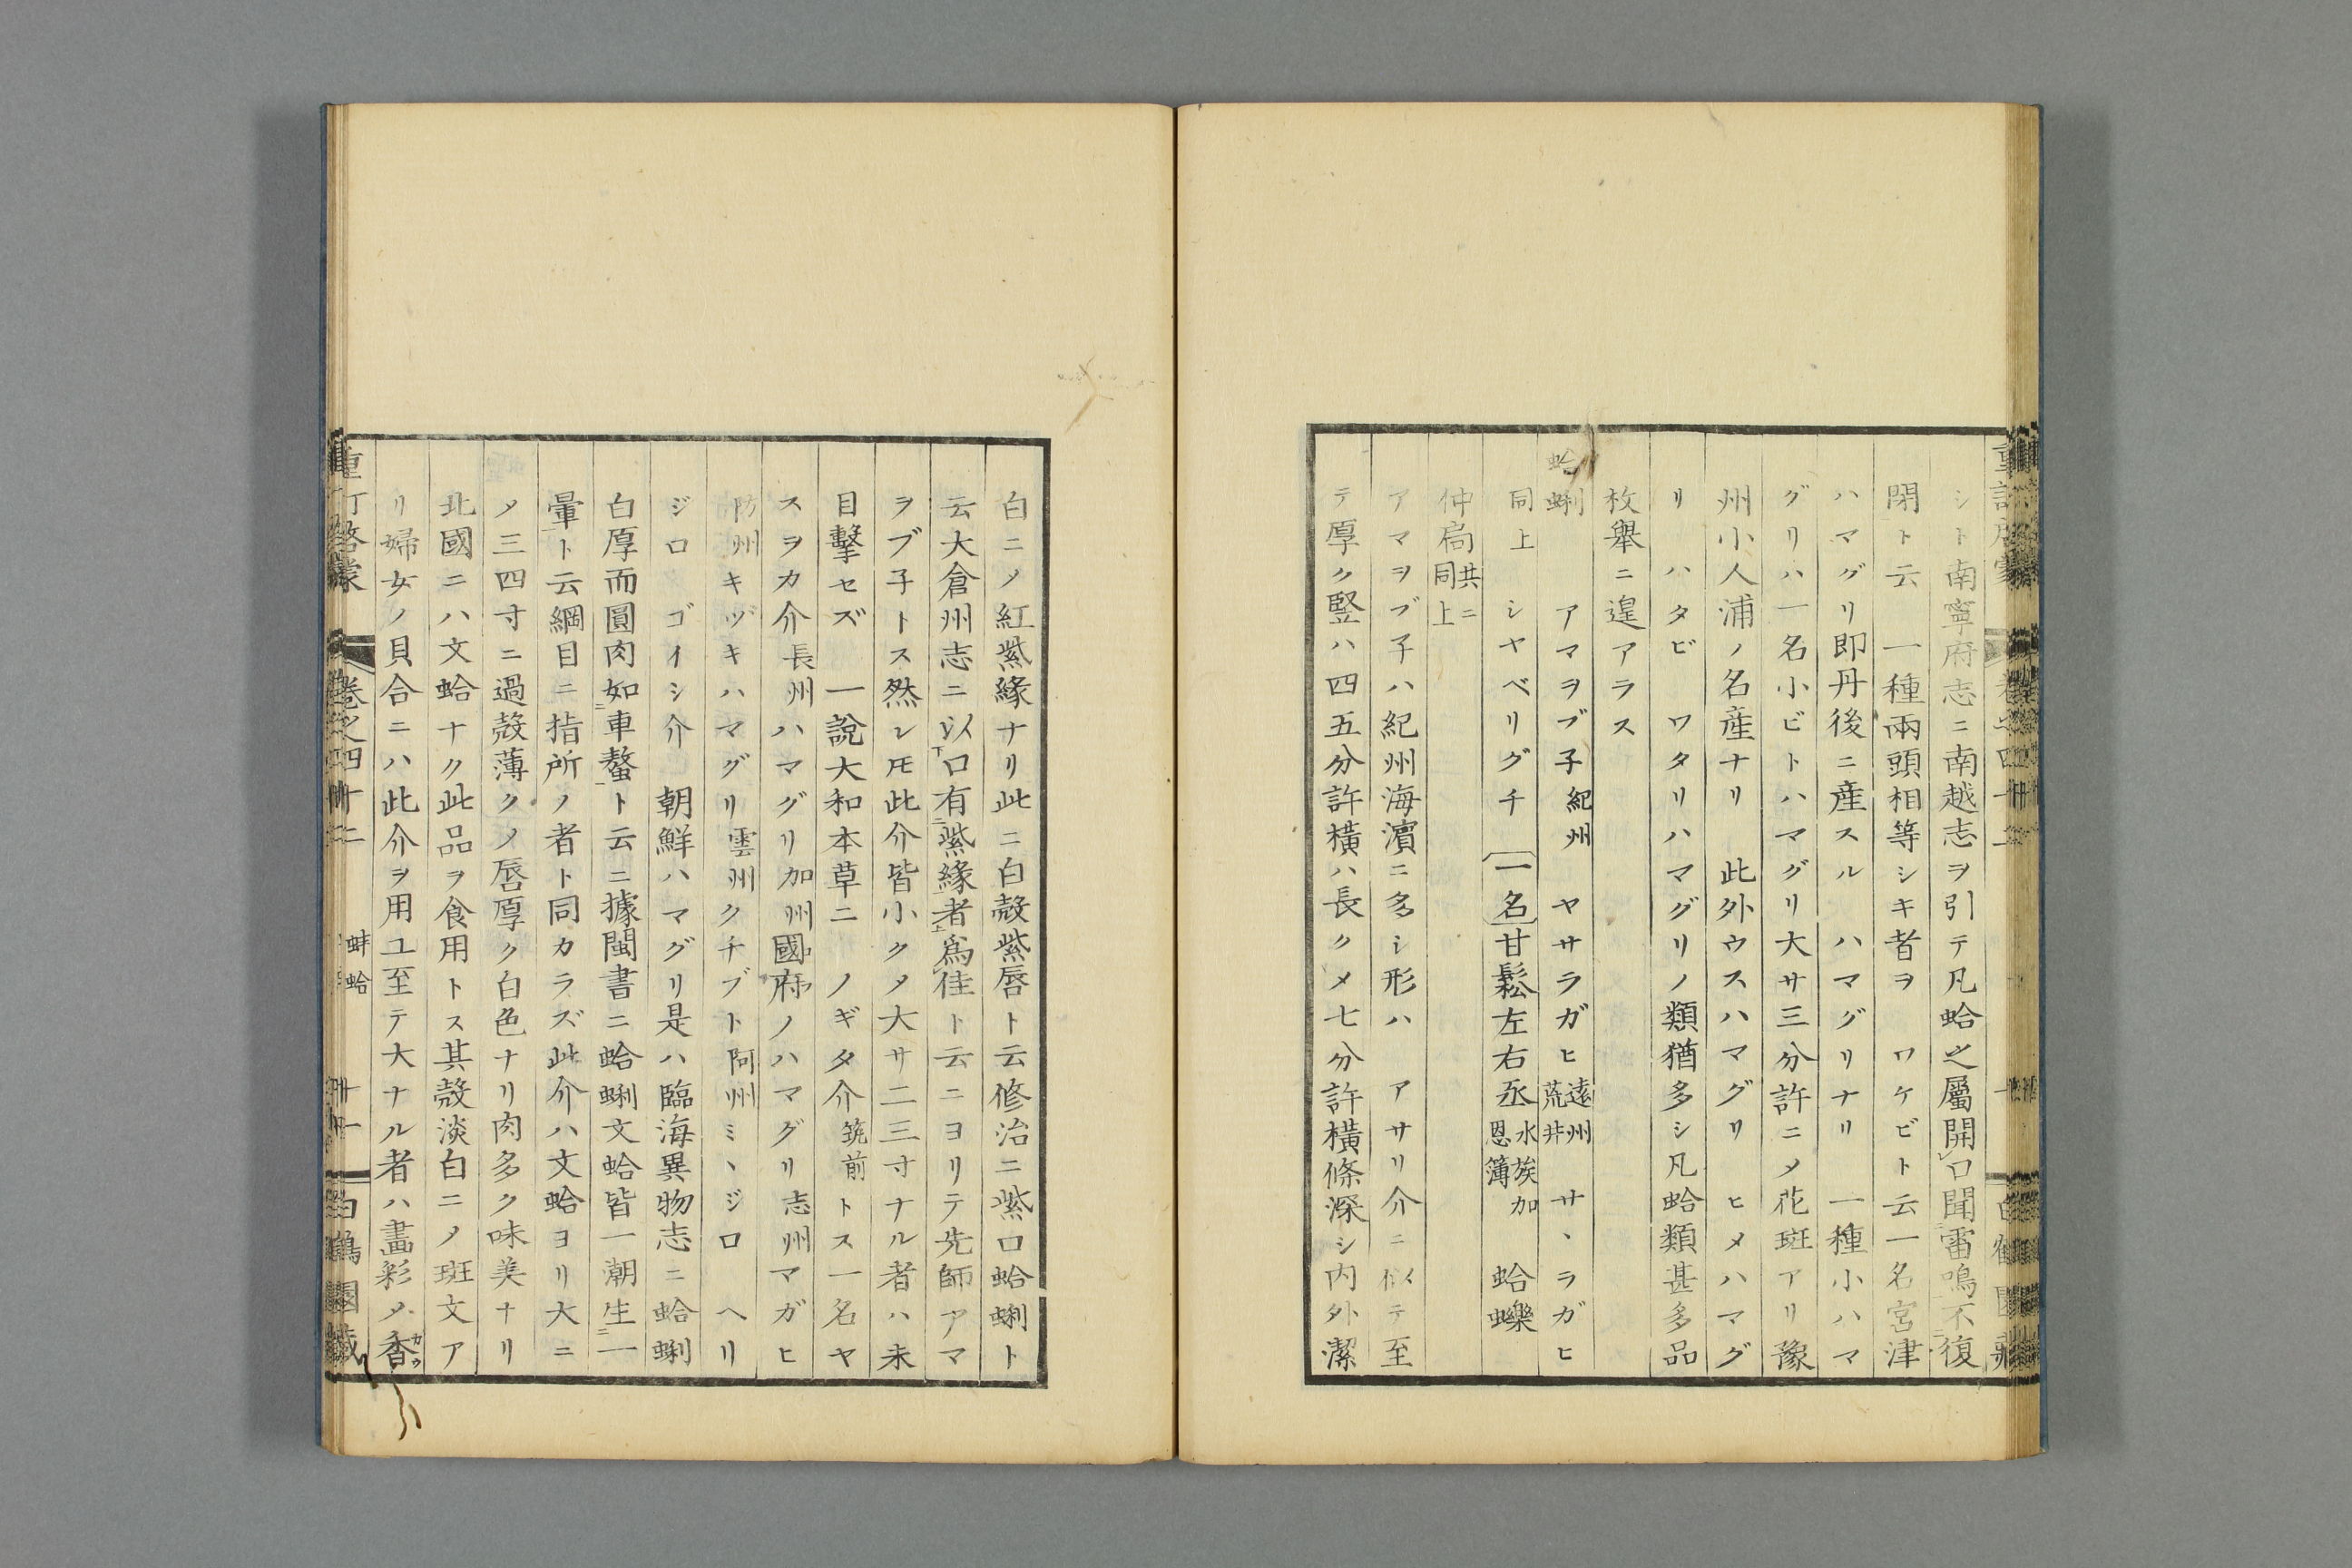 シト南寧府志ニ南越志ヲ引テ凡蛤之屬開口聞雷鳴不復
閉ト云　一種兩頭相等シキ者ヲ　ワケビト云一名宮津
ハマグリ即丹後ニ産スル　ハマグリナリ　一種小ハマ
グリハ一名小ビトハマグリ大サ三分許ニメ花斑アリ豫
州小人浦ノ名産ナリ　此外ウスハマグリ　ヒメハマグ
リ　ハタビ　ワタリハマグリノ類猶多シ凡蛤類甚多品
枚舉ニ遑アラス
蛤蜊　アマヲブ子紀州　ヤサラガヒ遠州荒井　サヽラガヒ
同上　シヤベリグチ　〔一名〕甘鬆左右丞水族加恩簿　蛤蠑
仲扃共ニ同上
アマヲブ子ハ紀州海濵ニ多シ形ハ　アサリ介ニ似テ至
テ厚ク竪ハ四五分許横ハ長クメ七八分許横條深シ内外潔
白ニノ紅紫緣ナリ此ニ白殻紫唇ト云修治ニ紫口蛤蜊ト
云大倉州志ニ以口有紫緣者爲佳ト云ニヨリテ先師アマ
ヲブ子トス然レ𪜈此介皆小クメ大サ二三寸ナル者ハ未
目擊セズ　一說大和本草ニ　ノギタ介筑前トス一名ヤ
スヲカ介長州ハマグリ加州國府ノハマグリ志州マガヒ
防州キヅキハマグリ雲州クチブト阿州ミヽジロ　ヘリ
ジロ　ゴイシ介　朝鮮ハマグリ是ハ臨海異物志ニ蛤蜊
白厚而圓肉如車螯ト云ニ據閩書ニ蛤蜊文蛤皆一潮生一
暈ト云綱目ニ指所ノ者ト同カラズ此介ハ文蛤ヨリ大ニ
ノ三四寸ニ過殻薄クノ唇厚ク白色ナリ肉多ク味美ナリ
北國ニハ文蛤ナク此品ヲ食用トス其殻淡白ニノ斑文ア
リ婦女ノ貝合ニハ此介ヲ用ユ至テ大ナル者ハ畫彩メ香
重訂啓蒙　卷之四十二　蚌蛤　十一　白鶴園藏